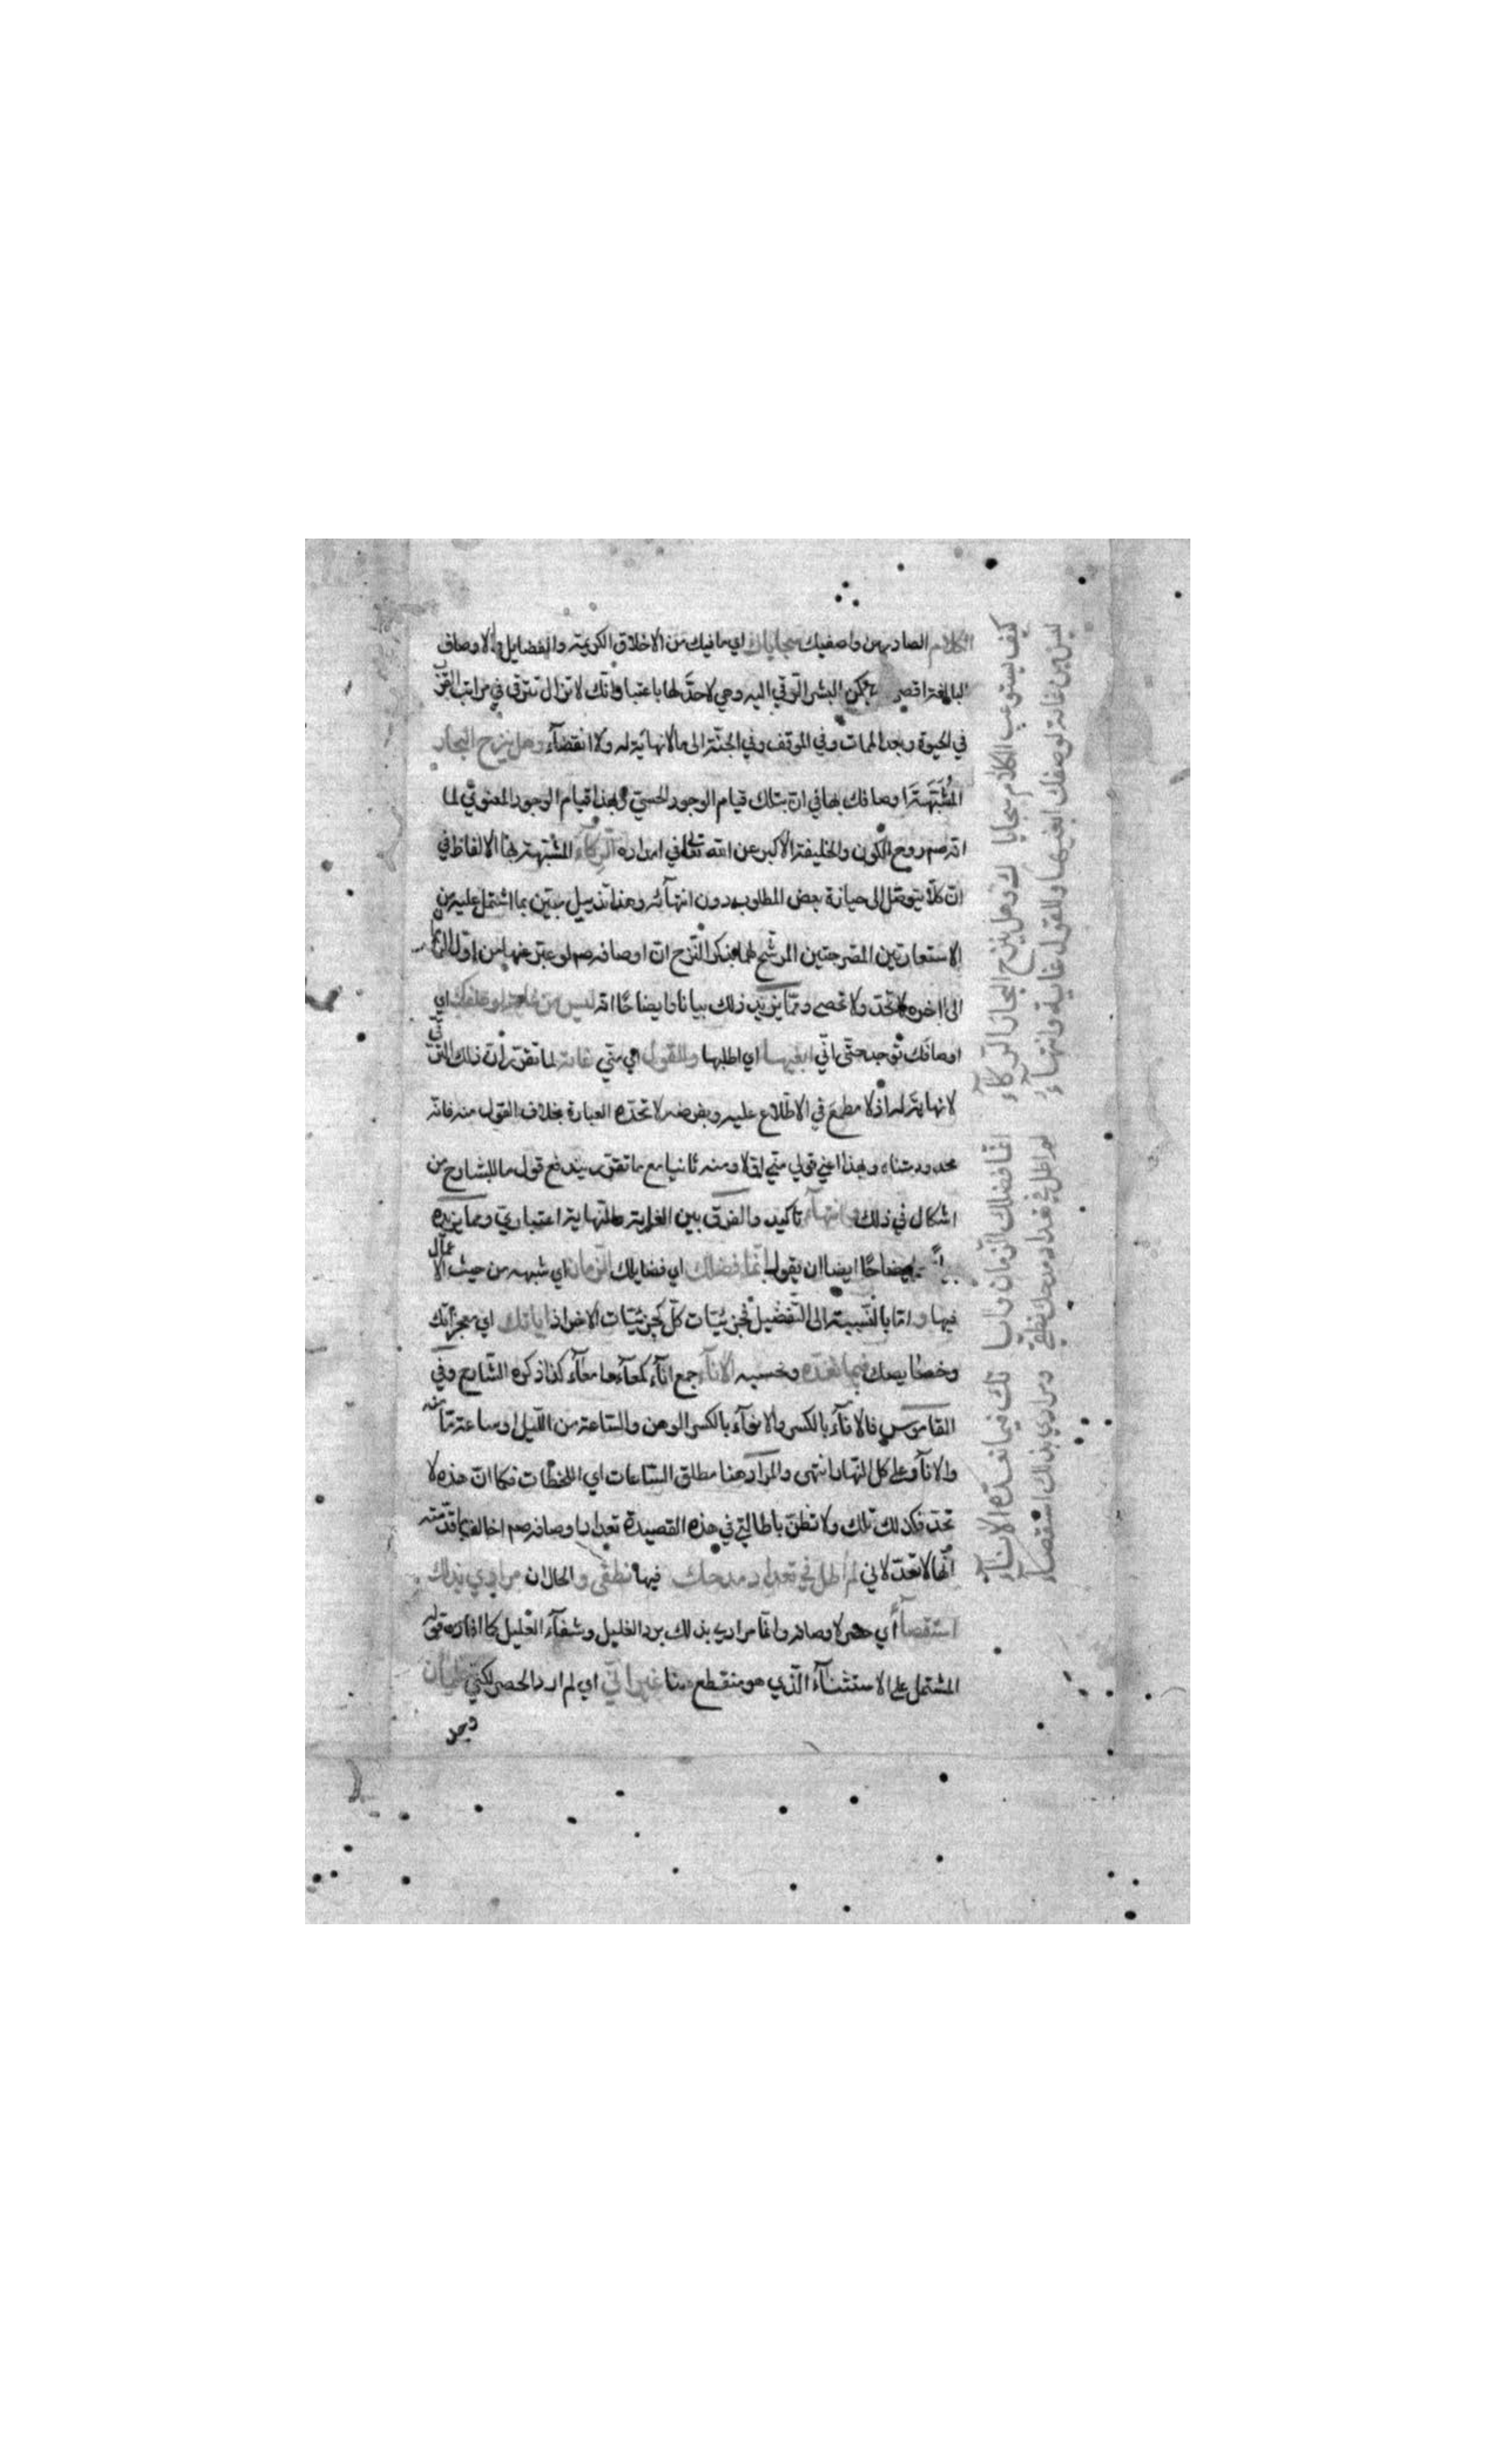 الكلام الصادر من واصفيك سجاياك اي ما فيك من الاخلاق الكريمة والفضايل والاوصاف
البالغة اقصى يمكن البشر الترقي اليه وهي لا حد لها باعتبار انك لا تزال تترقى في مراتب القرب
في الحيوة وبعد الممات وفي الموقف وفي الجنة الى ما لا نهاية له ولا انقضآء وهل ينزح البحار
المشبهة اوصافك بها في ان بتلك قيام الوجود الحسي وبهذا قيام الوجود المعنوي لما
انه صم روح الكون والخليفة الاكبر عن الله تعالى في امداده الركآء المشبهة بها الالفاظ في
ان كلا يتوصل الى حيازة بعض المطلوب دون انتهآئه وهذا تذييل مبين بما اشتمل عليه من
الاستعارتين المصرحتين المرشح لهما بذكر النزح ان اوصافه صم لو عبر عنها من اول
الى اخره لا تحد ولا تحصى ومما يزيد ذلك بيانا وايضاحا انه ليس من غاية لوصفك اي
اوصافك توجد حتى اني ابغيها اي اطلبها وللقول اي مني غاية لما تقرر ان ذلك الترقي
لا نهاية له اذ لا مطمع في الاطلاع عليه وبفرضه لا تحده العبارة بخلاف القول منه فانه
محدود متناه وبهذا اعني قولي مني اولا ومنه ثانيا مع ما تقرر يندفع قول ما للشارح من
اشكال في ذلك وانتهآء تاكيد والفرق بين الغاية والنهاية اعتباري ومما يزيده
ايضاحا ايضا ان يقول انما فضلك اي فضايلك الزمان اي شبهه من حيث الاجمال
فيها واما بالنسبة الى التفضيل فجزئيات كل كجزئيات الاخر اذ اياتك اي معجزاتك
وخصايصك فيما نعده ونحسبه الانآء جمع انآء كمعآء وامعآء كذا ذكره الشارح وفي
القاموس فالانآء بالكسر والانوآء بالكسر الوهن والساعة من الليل او ساعة ما منه
والانآء وعلى كل النهار انتهى والمراد هنا مطلق الساعات اي اللحظات فكما ان هذه لا
تحد فكذلك تلك ولا تظن باطالتي في هذه القصيدة تعداد اوصافه صم اخالف ما قدمته
انها لا تعد لاني لم اطل في تعداد مدحك فيها نطقي والحال ان مرادي بذلك
استقصآء اي حصر لاوصافه وانما مرادي بذلك برد الغليل وشفآء العليل كما افاده قوله
المشتمل على الاستثنآء الذي هو منقطع هنا غير اني اي لم ارد الحصر لكني ظمآن
وبحر
كيف يستوعب الكلام سجايا ك وهل ينزح البحار الركآء
ليس من غاية لوصفك ابغيها وللقول غاية وانتهآء
انما فضلك الزمان وايا تك فيما نعده الانآء
لم اطل في تعداد مدحك نطقي ومرادي بذلك استقصآء